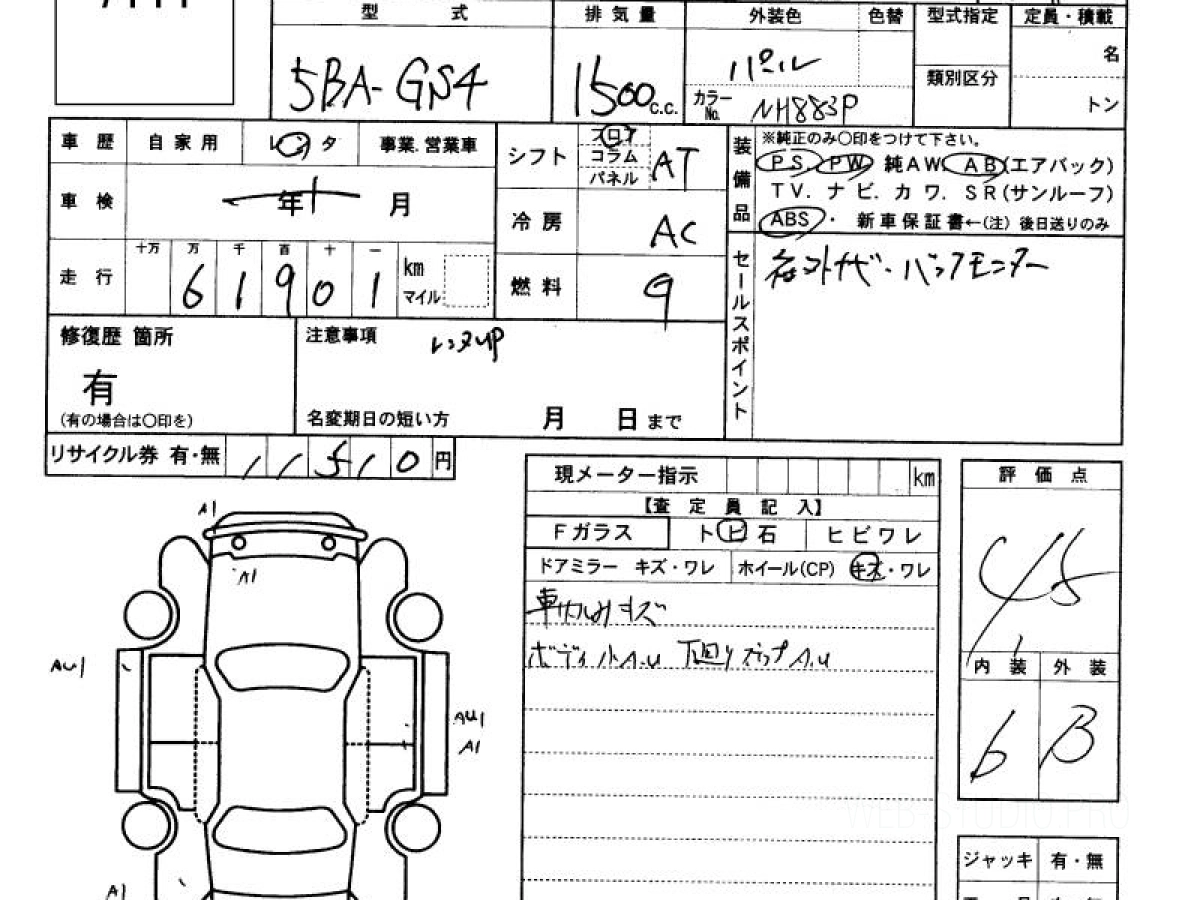 型 式 排気量 外装色 色替 型式指定 定員・積載
5BA-GS4 1500 c.c. パール 名
カラーNo. NH883P 類別区分 トン
車歴 自家用 レンタ 事業.営業車 シフト フロア コラム パネル AT
装備品 ※純正のみ〇印をつけて下さい。
PS PW 純AW AB(エアバック)
TV. ナビ. カワ. SR(サンルーフ)
ABS ・ 新車保証書←(注) 後日送りのみ
車検 年 月 冷房 AC
走行 十万 万 千 百 十 一
6 1 9 0 1 km マイル 燃料
セールスポイント 社外ナビ・バックモニター
修復歴 箇所 注意事項 レンタUP
有
(有の場合は〇印を) 名変期日の短い方 月 日 まで
リサイクル券 有・無 1 1 5 1 0 円
現メーター指示 km 評価点
【査定員記入】
Fガラス トビ石 ヒビワレ
ドアミラー キズ・ワレ ホイール(CP) キズ・ワレ
4/5
ボディ小A.U 下回り A.U
内装 外装
b B
A1
A1
AU1
AU1
A1
A1
ジャッキ 有・無
WEB-STUDIO.PRO